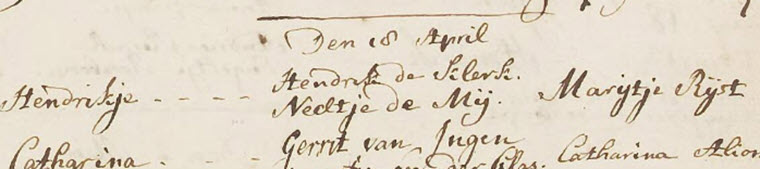 Den 18 April
Hendrik de Klerk.
Hendrikje - - - - Neeltje de Mij. Marijtje Rijst
Gerrit van Ingen
Catharina - - - Catharina